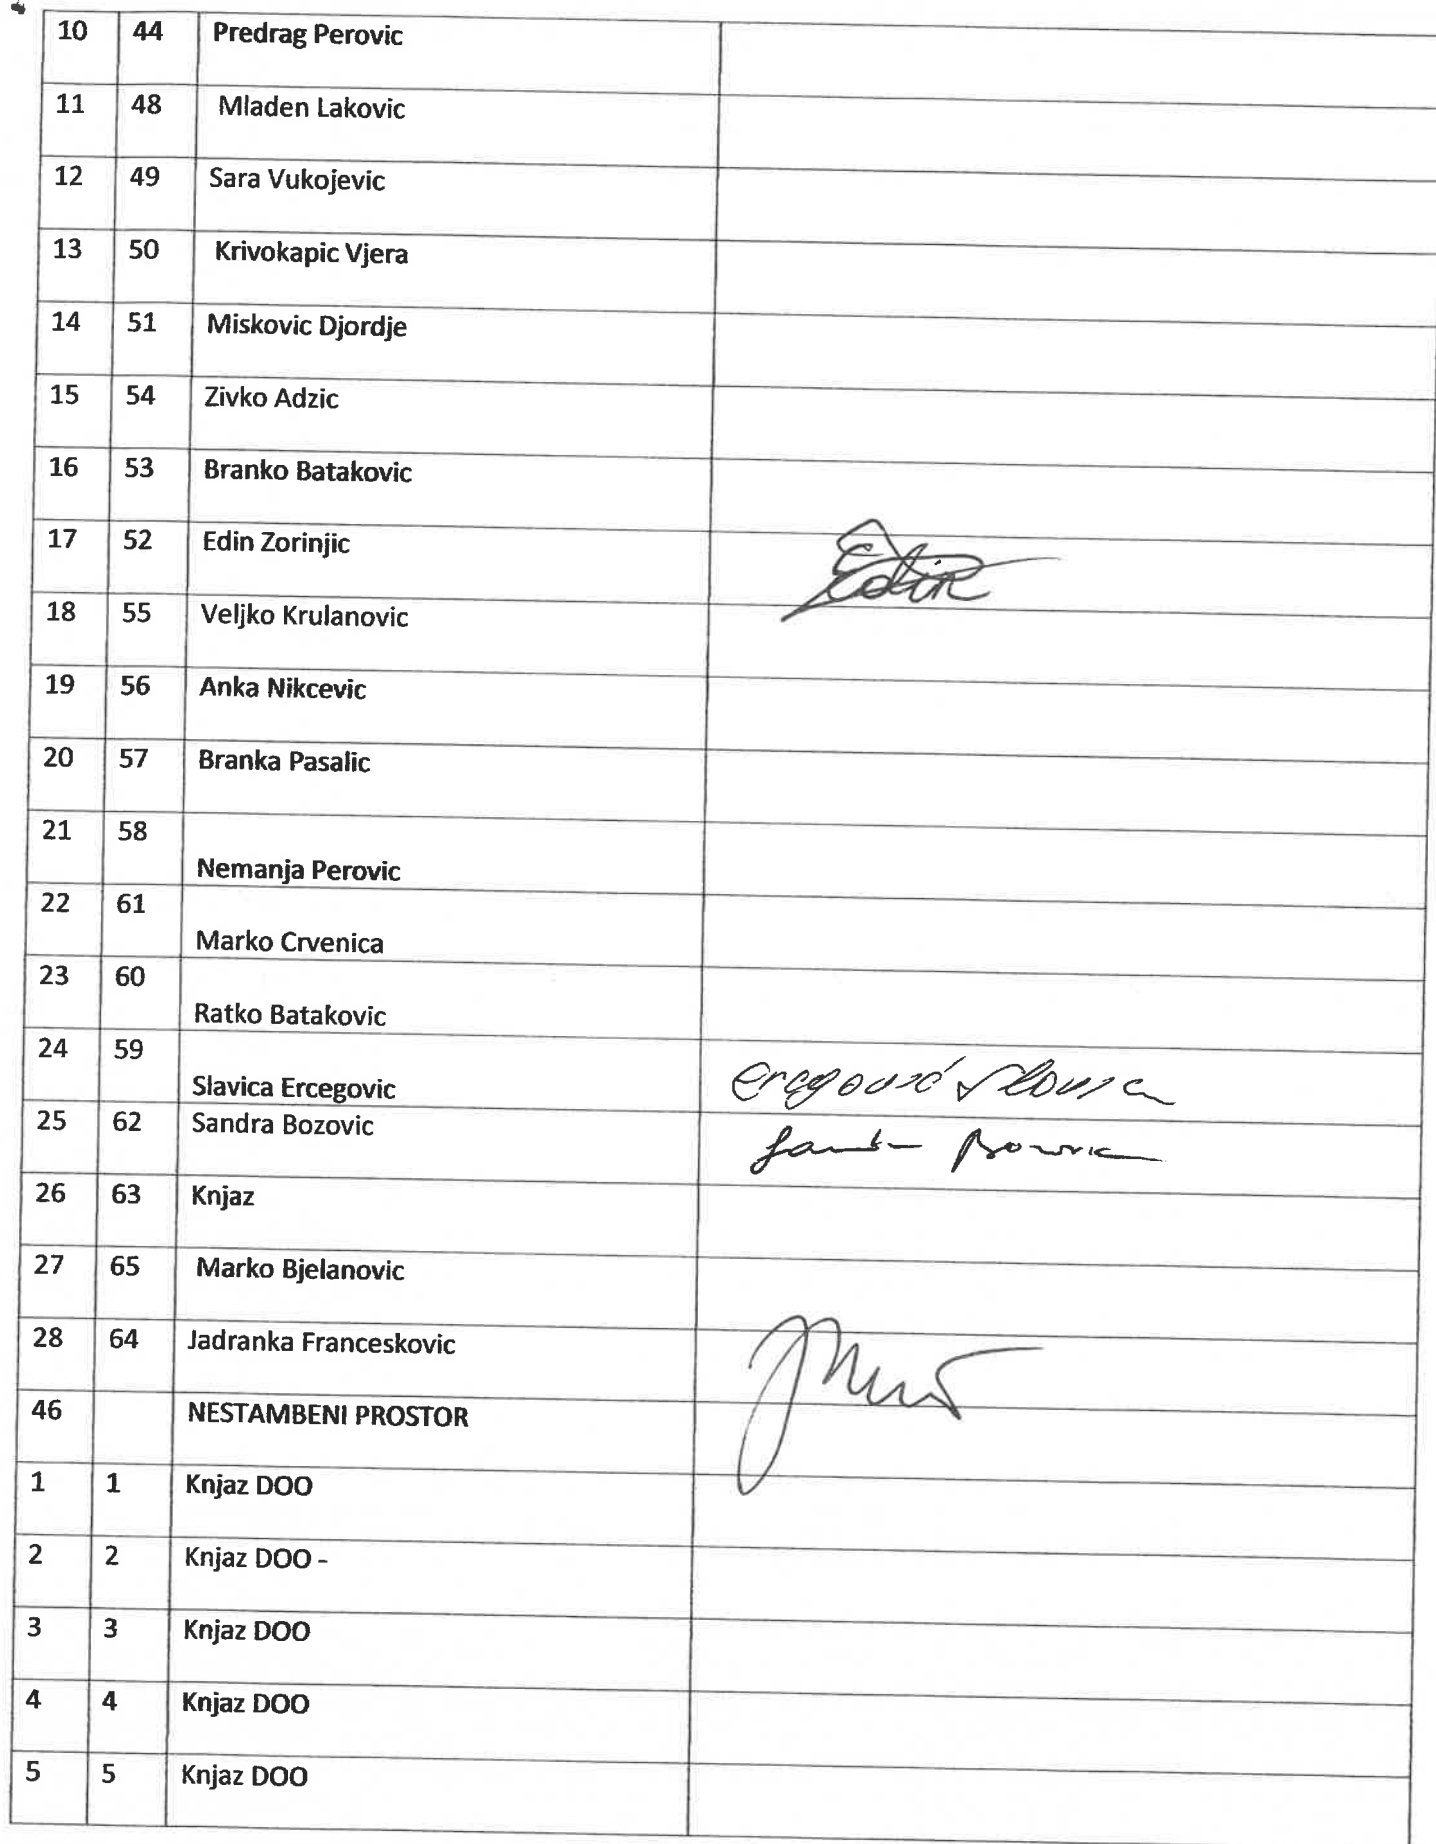 10 44 Predrag Perovic
11 48 Mladen Lakovic
12 49 Sara Vukojevic
13 50 Krivokapic Vjera
14 51 Miskovic Djordje
15 54 Zivko Adzic
16 53 Branko Batakovic
17 52 Edin Zorinjic Edin
18 55 Veljko Krulanovic
19 56 Anka Nikcevic
20 57 Branka Pasalic
21 58
Nemanja Perovic
22 61
Marko Crvenica
23 60
Ratko Batakovic
24 59
Slavica Ercegovic
25 62 Sandra Bozovic
26 63 Knjaz
27 65 Marko Bjelanovic
28 64 Jadranka Franceskovic
46 NESTAMBENI PROSTOR
1 1 Knjaz DOO
2 2 Knjaz DOO -
3 3 Knjaz DOO
4 4 Knjaz DOO
5 5 Knjaz DOO